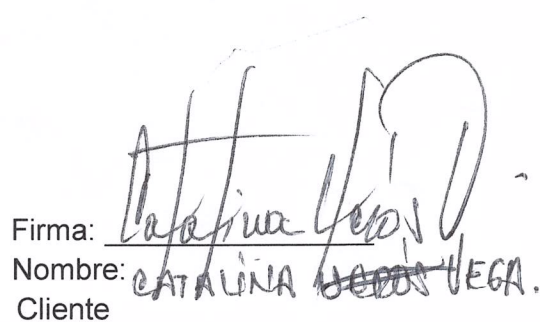 Firma: Catalina
Nombre: CATALINA VEGA.
Cliente